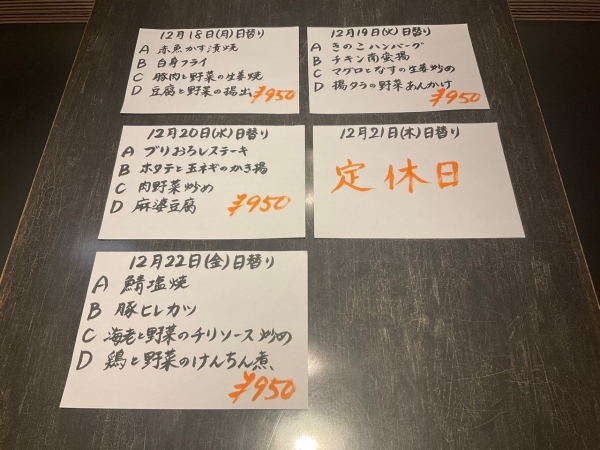 12月18日(月)日替り
A 赤魚かす漬焼
B 白身フライ
C 豚肉と野菜の生姜焼
D 豆腐と野菜の揚出
¥950
12月19日(火)日替り
A きのこハンバーグ
B チキン南蛮揚
C マグロとなすの生姜炒め
D 揚タラの野菜あんかけ
¥950
12月20日(水)日替り
A ブリおろしステーキ
B ホタテと玉ネギのかき揚
C 肉野菜炒め
D 麻婆豆腐
¥950
12月21日(木)日替り
定休日
12月22日(金)日替り
A 鯖塩焼
B 豚ヒレカツ
C 海老と野菜のチリソース炒め
D 鶏と野菜のけんちん煮
¥950